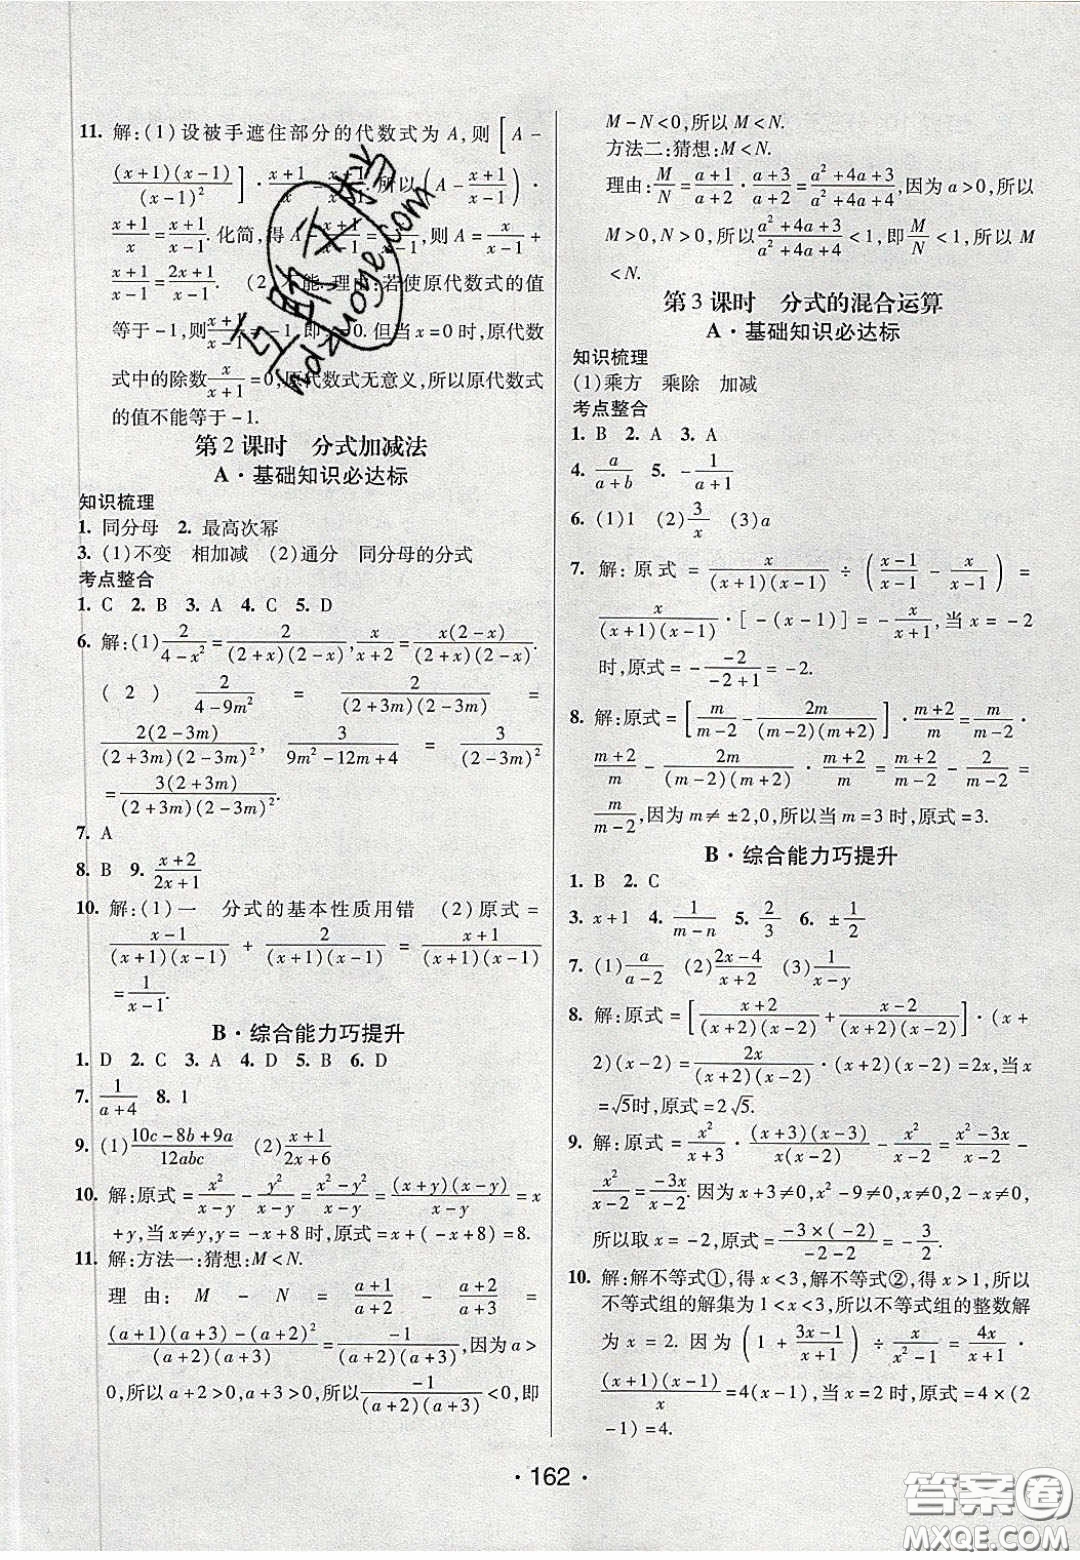 11. 解:(1)设被手遮住部分的代数式为 A,则[A -
(x+1)(x-1)/(x-1)²]·(x+1)/x = (x+1)/x. 所以(A - (x+1)/(x-1))·
(x+1)/x = (x+1)/(x-1). 化简,得 A - (x+1)/(x-1) = x/(x-1),则 A = x/(x-1) +
(x+1)/(x-1) = (2x+1)/(x-1). (2)不能. 理由:若使原代数式的值
等于 -1,则(x+1)/(x-1) = -1,即 x=0. 但当 x=0 时,原代数
式中的除数 x/(x+1) =0,原代数式无意义,所以原代数式
的值不能等于 -1.
第 2 课时 分式加减法
A·基础知识必达标
知识梳理
1. 同分母 2. 最高次幂
3. (1)不变 相加减 (2)通分 同分母的分式
考点整合
1. C 2. B 3. A 4. C 5. D
6. 解:(1) 2/(4-x²) = 2/((2+x)(2-x)), x/(x+2) = x(2-x)/((2+x)(2-x)).
(2) 2/(4-9m²) = 2/((2+3m)(2-3m)) =
2(2-3m)/((2+3m)(2-3m)²), 3/(9m²-12m+4) = 3/(2-3m)²
= 3(2+3m)/((2+3m)(2-3m)²).
7. A
8. B 9. (x+2)/(2x+1)
10. 解:(1)一 分式的基本性质用错 (2)原式 =
(x-1)/((x+1)(x-1)) + 2/((x+1)(x-1)) = (x+1)/((x+1)(x-1))
= 1/(x-1).
B·综合能力巧提升
1. D 2. C 3. A 4. D 5. B 6. D
7. 1/(a+4) 8. 1
9. (1) (10c-8b+9a)/12abc (2) (x+1)/(2x+6)
10. 解:原式 = x²/(x-y) - y²/(x-y) = (x²-y²)/(x-y) = (x+y)(x-y)/(x-y) = x
+y,当 x≠y,y=-x+8 时,原式 = x+(-x+8)=8.
11. 解:方法一:猜想:M<N.
理由:M - N = (a+1)/(a+2) - (a+2)/(a+3) =
((a+1)(a+3)-(a+2)²)/((a+2)(a+3)) = -1/((a+2)(a+3)),因为 a>
0,所以 a+2>0,a+3>0,所以 -1/((a+2)(a+3)) <0,即
M-N<0,所以 M<N.
方法二:猜想:M<N.
理由:M/N = (a+1)/(a+2)·(a+3)/(a+2) = (a²+4a+3)/(a²+4a+4),因为 a>0,所以
M>0,N>0,所以(a²+4a+3)/(a²+4a+4) <1,即 M/N <1,所以 M
<N.
第 3 课时 分式的混合运算
A·基础知识必达标
知识梳理
(1)乘方 乘除 加减
考点整合
1. B 2. A 3. A
4. a/(a+b) 5. -1/(a+1)
6. (1)1 (2)3/x (3)a
7. 解:原式 = x/((x+1)(x-1)) ÷ ((x-1)/(x-1) - x/(x-1)) =
x/((x+1)(x-1))·[-(x-1)] = -x/(x+1),当 x = -2
时,原式 = -(-2)/(-2+1) = -2.
8. 解:原式 = [m/(m-2) - 2m/((m-2)(m+2))]·(m+2)/m = m/(m-2)·
(m+2)/m - 2m/((m-2)(m+2))·(m+2)/m = m/(m-2) - 2/(m-2) =
m/(m-2),因为 m≠±2,0,所以当 m=3 时,原式=3.
B·综合能力巧提升
1. B 2. C
3. x+1 4. 1/(m-n) 5. 2/3 6. ±1/2
7. (1) a/(a-2) (2) (2x-4)/(x+2) (3) 1/(x-y)
8. 解:原式 = [(x+2)/((x+2)(x-2)) + (x-2)/((x+2)(x-2))]·(x+
2)(x-2) = 2x/((x+2)(x-2))·(x+2)(x-2) = 2x,当 x
=√5时,原式 = 2√5.
9. 解:原式 = x²/(x+3)·(x+3)(x-3)/(x(x-2)) - x²/(x-2) = (x²-3x)/(x-2) -
x²/(x-2) = -3x/(x-2). 因为 x+3≠0,x²-9≠0,x≠0,2-x≠0,
所以取 x=-2,原式 = (-3×(-2))/(-2-2) = -3/2.
10. 解:解不等式①,得 x<3,解不等式②,得 x>1,所以
不等式组的解集为 1<x<3,所以不等式组的整数解
为 x=2. 因为(1 + (3x-1)/(x+1)) ÷ x/(x²-1) = 4x/(x+1)·
(x+1)(x-1)/x = 4(x-1),当 x=2 时,原式 = 4×(2
-1)=4.
·162·
答案圈
MXQE.COM